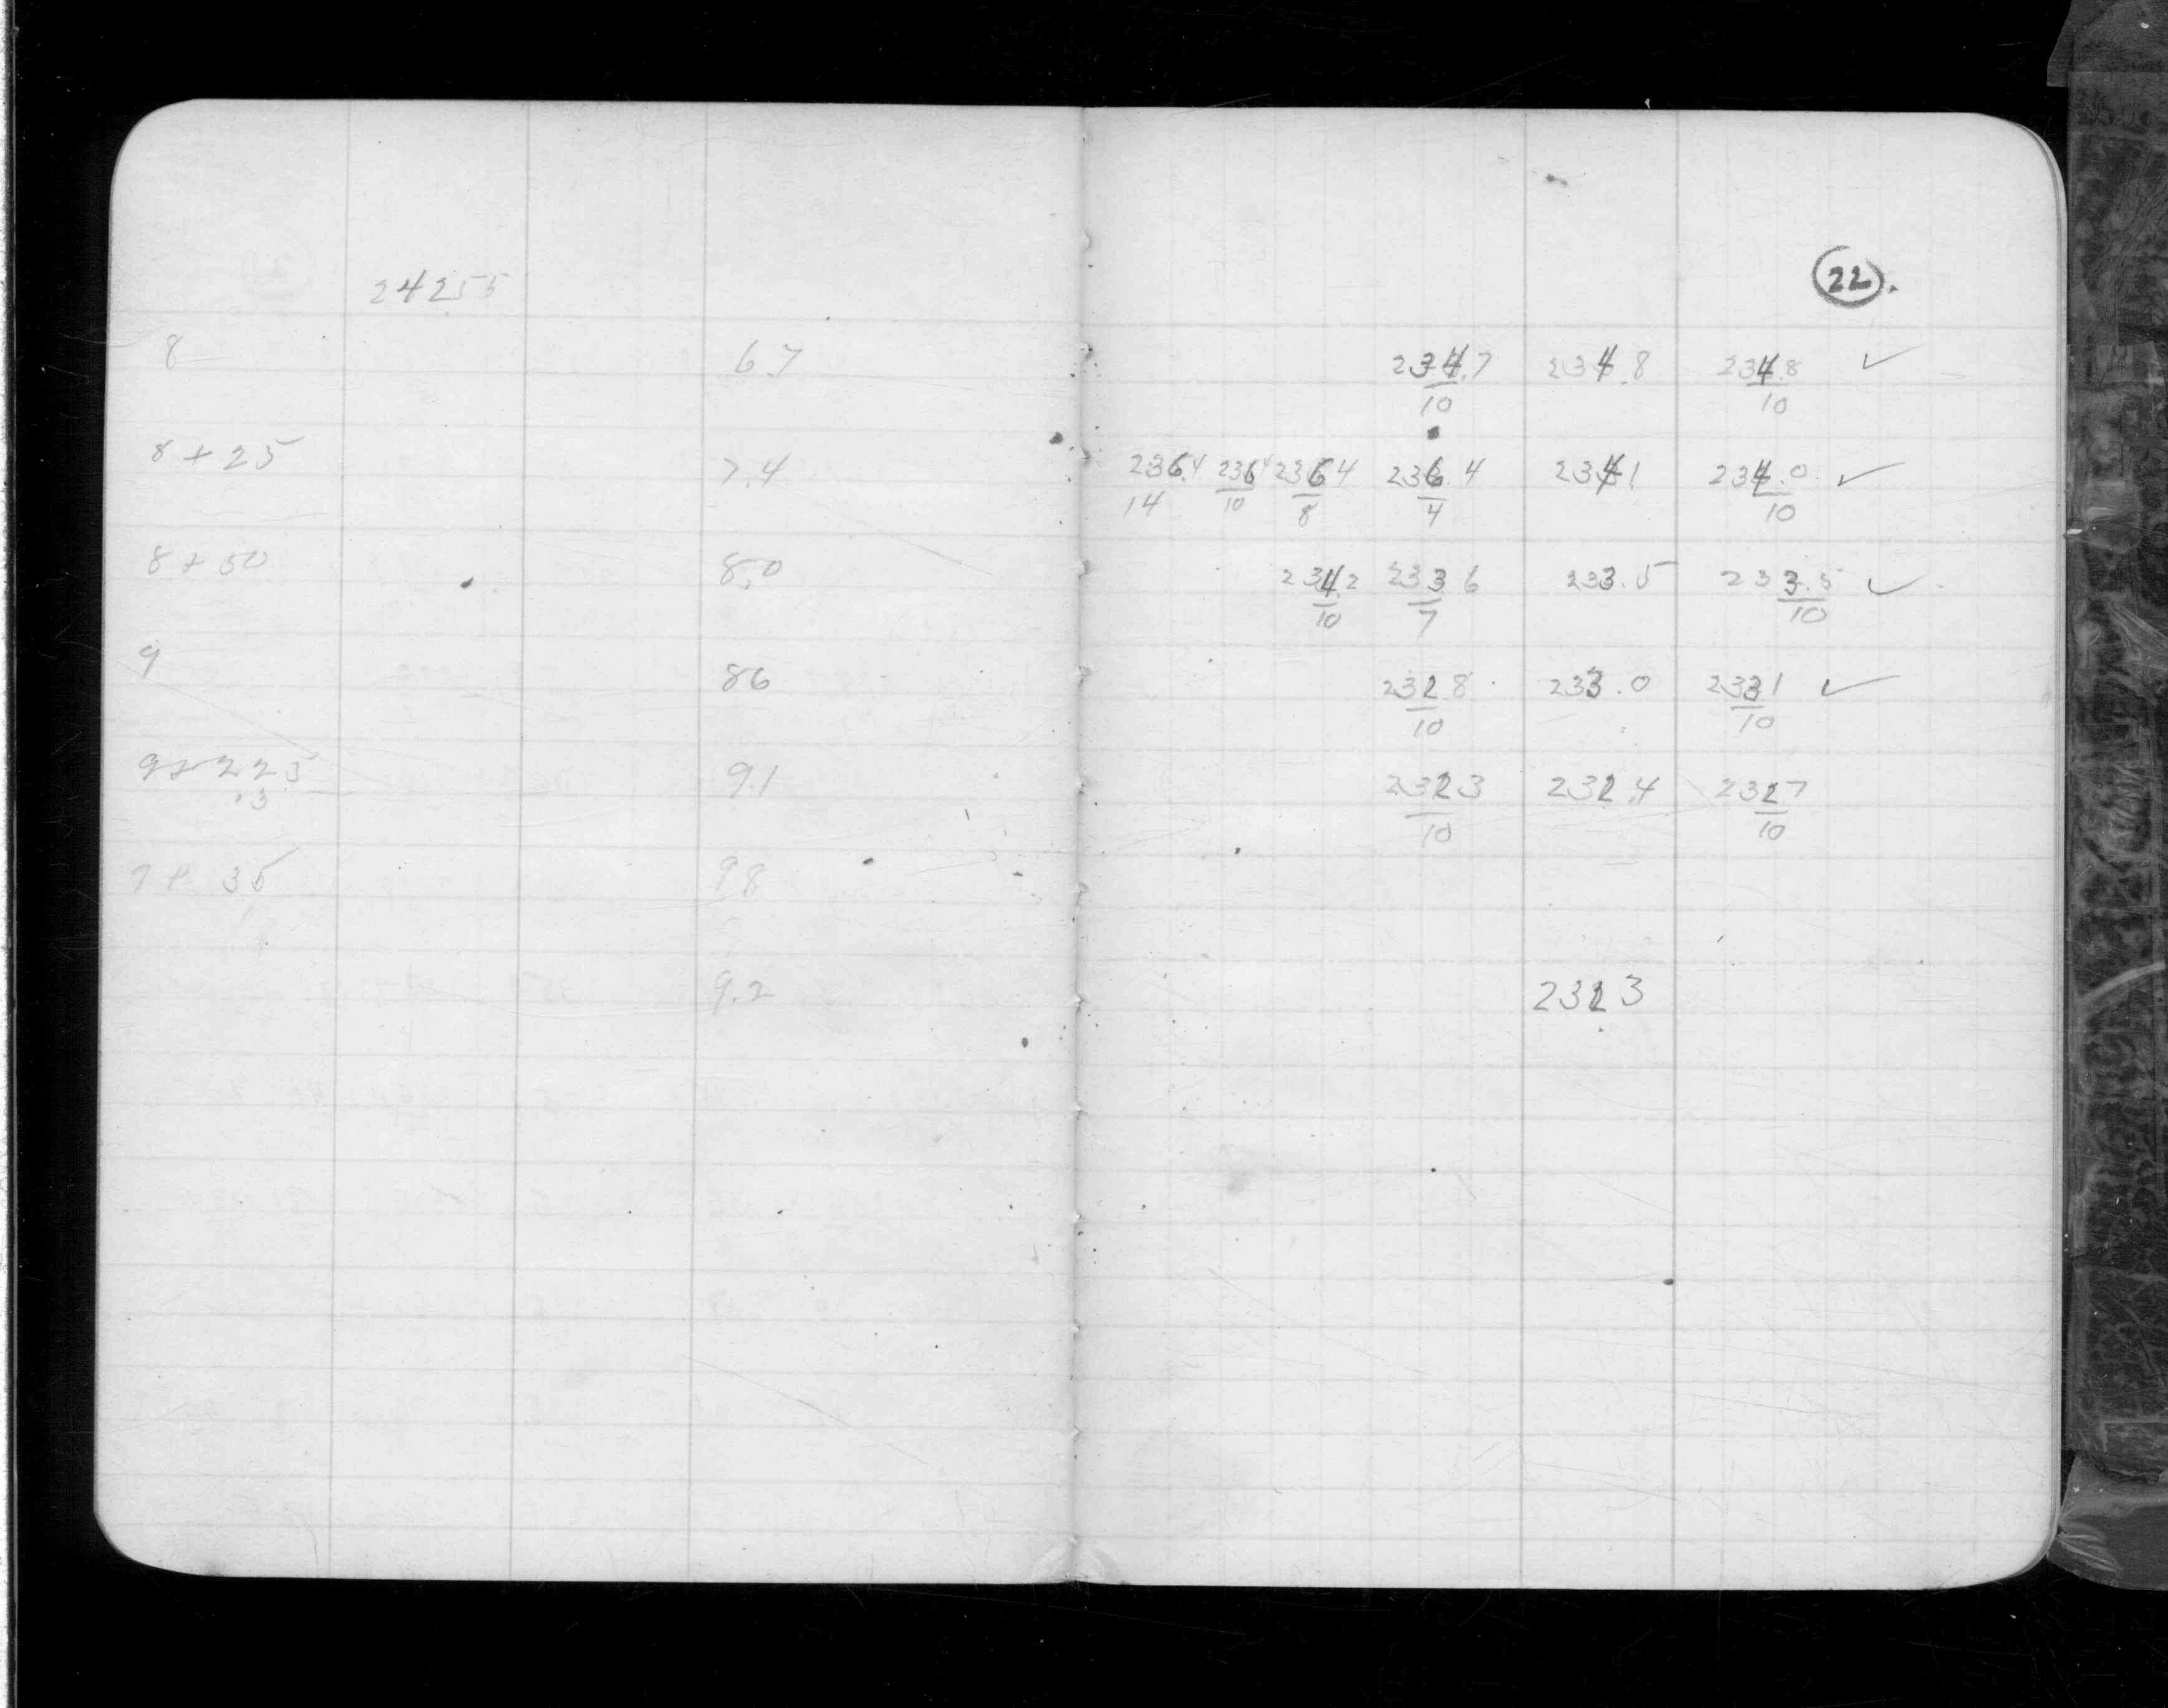 22.
24255
8 6.7 234.7 234.8 234.8 ✓
10 10
8 + 25 7.4 236.4 236.4 236.4 236.4 234.1 234.0 ✓
14 10 8 4 10
8 + 50 8.0 234.2 233 6 233.5 233.5 ✓
10 7 10
9 86 232 8 233.0 233 1 ✓
10 10
9+22.5 9.1 232 3 232.4 232 7
.3 10 10
9+ 35 98
9.2 232 3